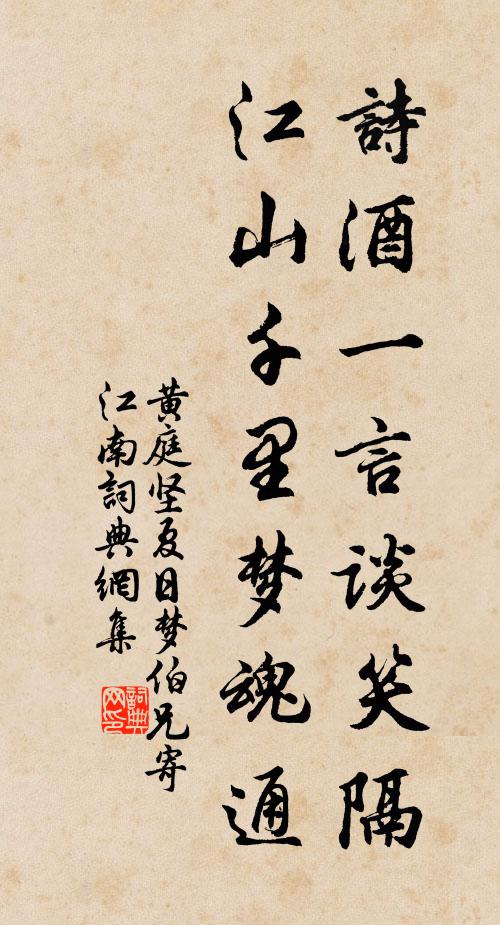 詩酒一言谈笑隔
江山千里梦魂通
黄庭坚夏日梦伯兄寄
江南詞典網集
詞典
网印